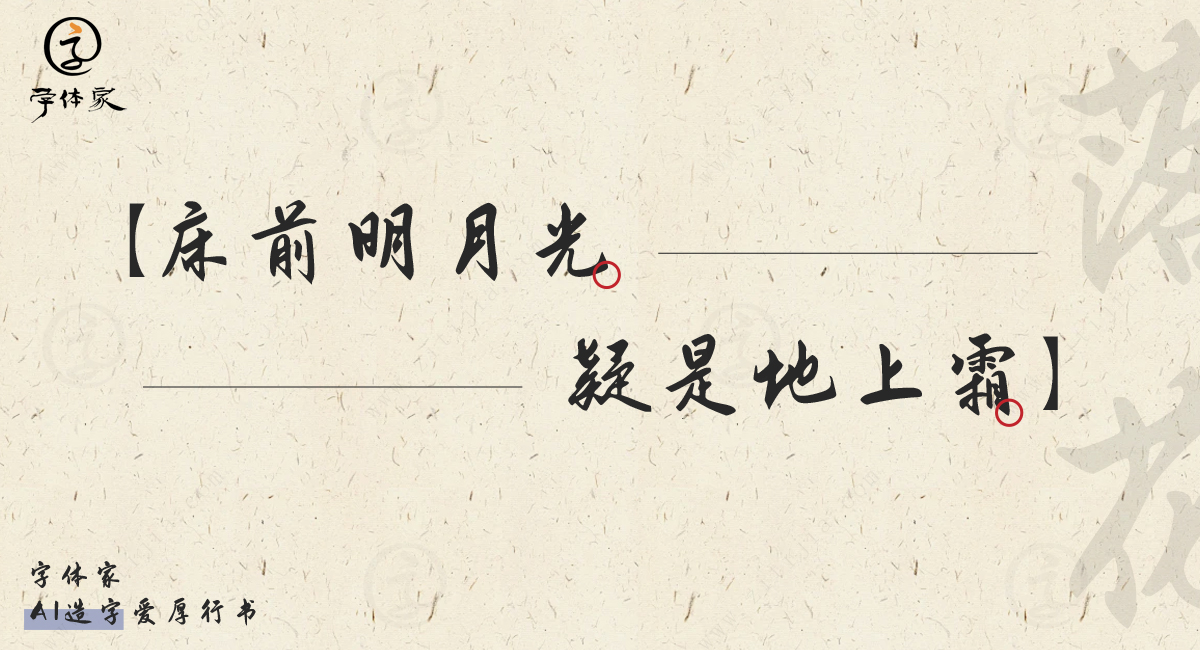 字体家
【床前明月光
疑是地上霜】
字体家
AI造字爱厚行书
落
花